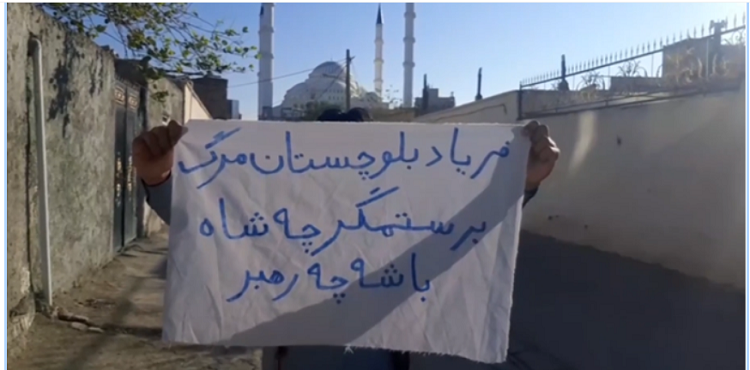 فریاد بلوچستان مرگ
بر ستمگر چه شاه
باشه چه رهبر